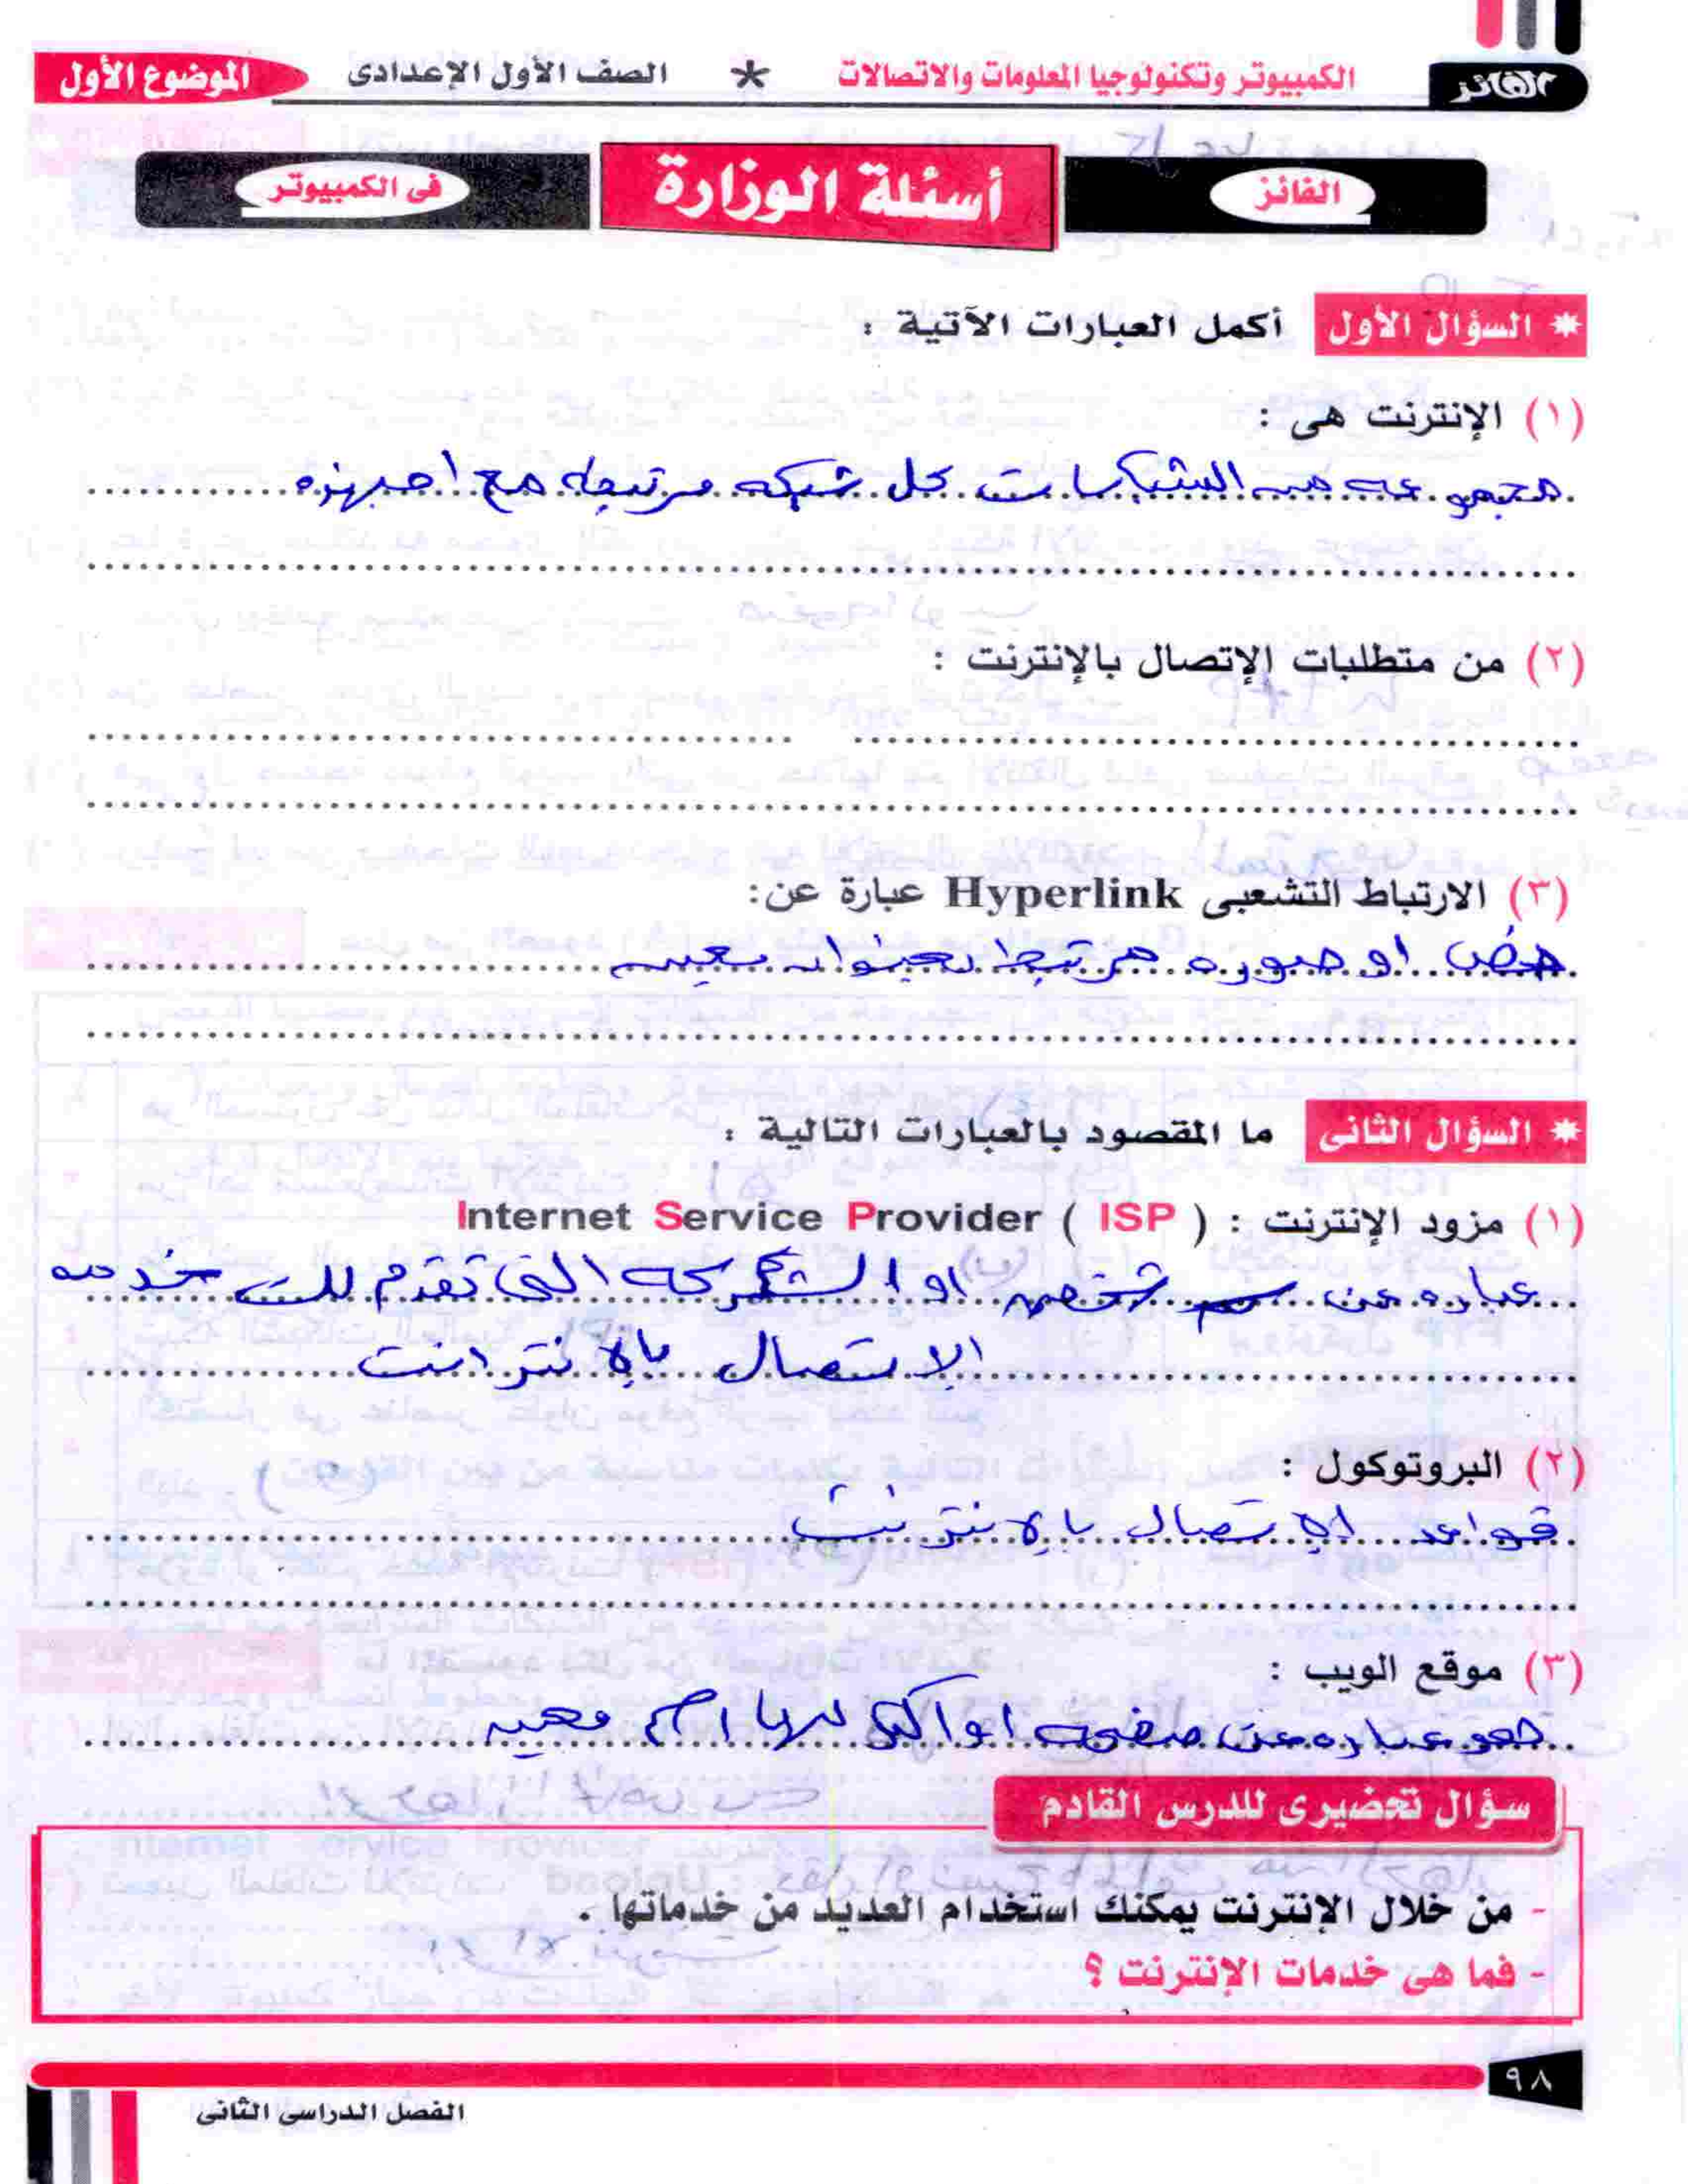 الفائز
الكمبيوتر وتكنولوجيا المعلومات والاتصالات * الصف الأول الإعدادى الموضوع الأول
الفائز أسئلة الوزارة فى الكمبيوتر
* السؤال الأول أكمل العبارات الآتية :
(١) الإنترنت هى :
مجموعه من الشبكات كل شبكه مرتبطه مع اجهزه
(٢) من متطلبات الإتصال بالإنترنت :
(٣) الارتباط التشعبى Hyperlink عبارة عن:
او صوره مرتبط بعنوان معين
* السؤال الثانى ما المقصود بالعبارات التالية :
(١) مزود الإنترنت : ( ISP ) Internet Service Provider
عباره عن شخص او الشركه التى تقدم لك خدمه
الاتصال بالانترانت
(٢) البروتوكول :
قواعد الاتصال بالانترنت
(٣) موقع الويب :
عباره عن صفحه او اكثر لها اسم معين
سؤال تحضيرى للدرس القادم
- من خلال الإنترنت يمكنك استخدام العديد من خدماتها .
- فما هى خدمات الإنترنت ؟
٩٨
الفصل الدراسى الثانى